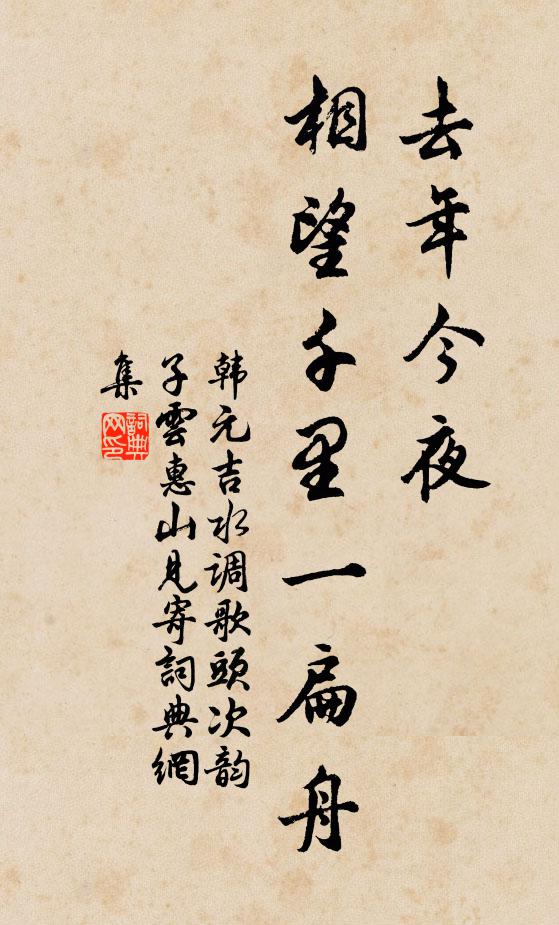 去年今夜
相望千里一扁舟
韩元吉水调歌头次韵
子雲惠山見寄詞典網
集
詞典網印